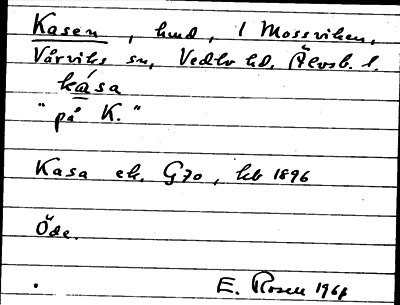 Kasen, hmd, 1 Mossviken,
Vårviks sn, Vedbo hd, Älvsb. l.
kása
"på K."
Kasa ek. G70, hb 1896
Öde.
E. Rosell 1964